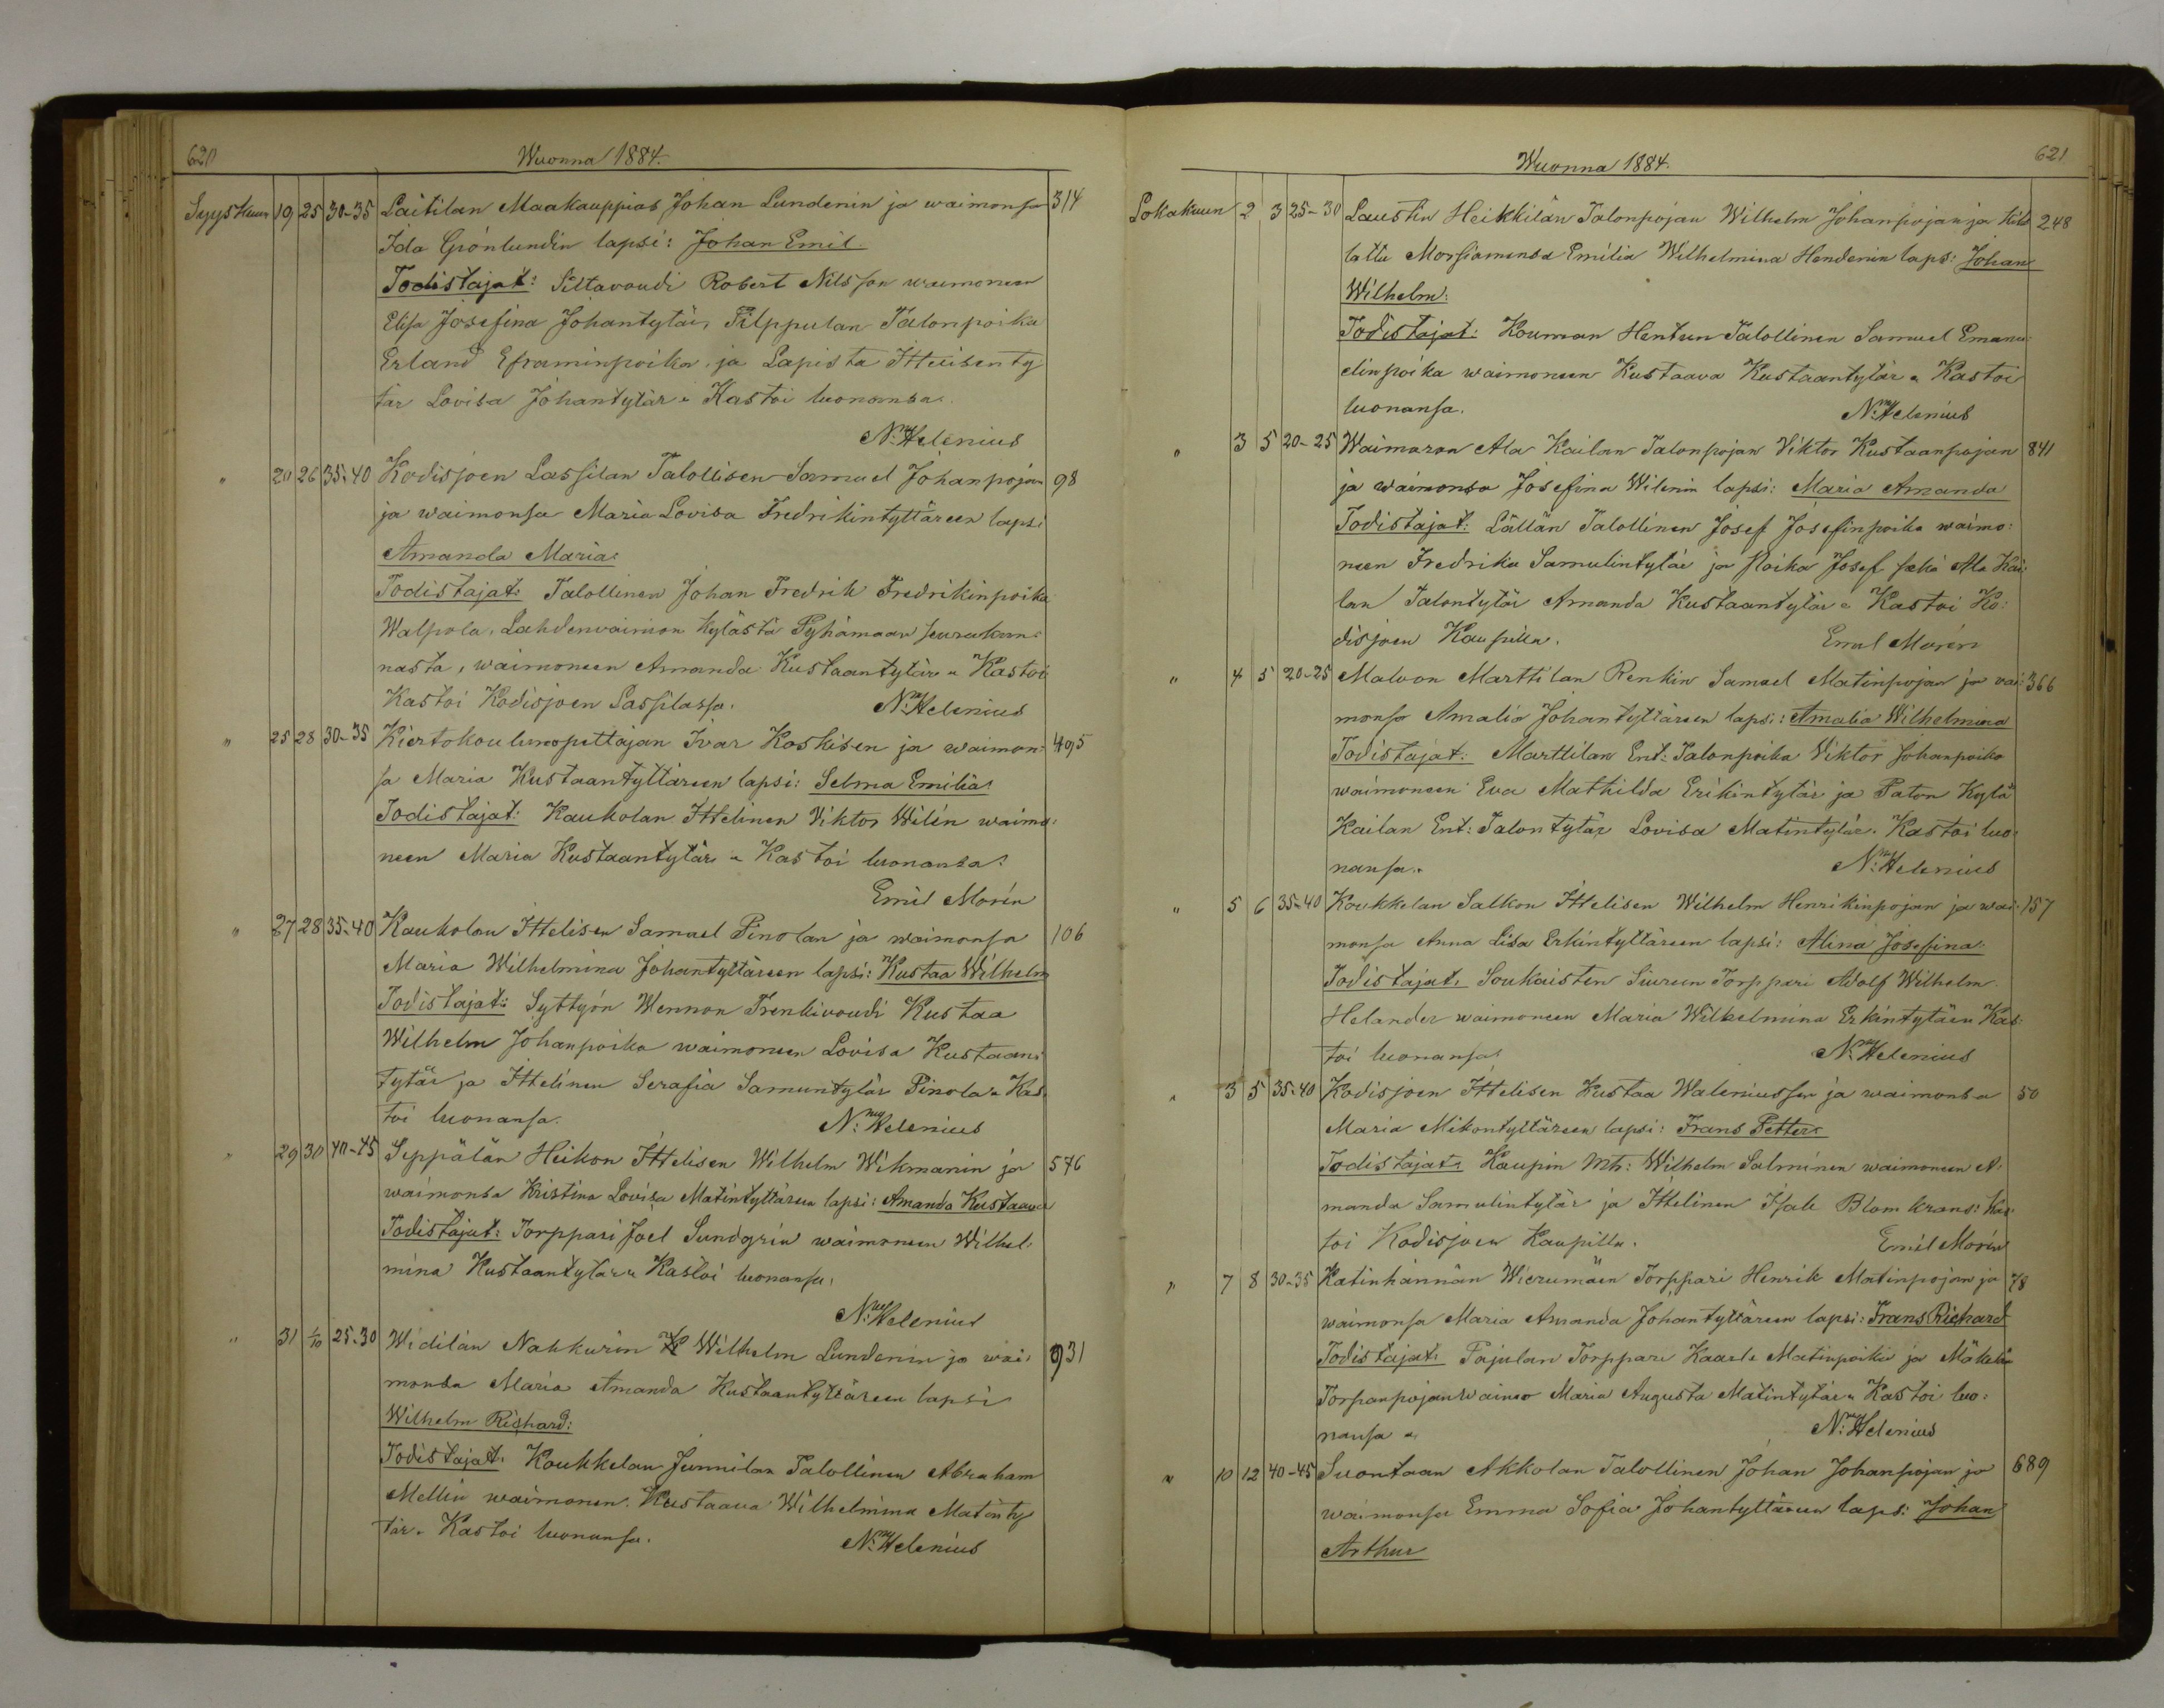 620
Wuonna 1884.
Syyskuun 19 25 30-35 Laitilan Maakauppias Johan Lundenin ja waimonsa 314
Ida Grönlundin lapsi: Johan Emil.
Todistajat: Siltavoudi Robert Nilsson waimoneen
Elisa Josefina Johantytär, Pilppulan Talonpoika
Erland Eframinpoika, ja Lapista Ittellisenty
tär Lovisa Johantytär " Kastoi luonansa.
N:ny Helenius
" 20 26 35-40 Kodisjoen Lassilan Talollisen Samuel Johanpojan 98
ja waimonsa Maria Lovisa Fredrikintyttäreen lapsi
Amanda Maria:
Todistajat: Talollinen Johan Fredrik Fredrikinpoika
Walpola, Lahdenwainion kylästä Pyhämaan seurakun:
nasta, waimoneen Amanda Kustaantytär " Kastoi
Kastoi Kodisjoen Lassilassa. N:ny Helenius
" 25 28 30-35 Kiertokoulunopettajan Ivar Koskisen ja waimon: 495
sa Maria Kustaantyttäreen lapsi: Selma Emilia:
Todistajat: Kaukolan Ittelinen Viktor Wilén waimo:
neen Maria Kustaantytär " Kastoi luonansa:
Emil Morén
" 27 28 35-40 Kaukolan Ittelisen Samuel Pinolan ja waimonsa 106
Maria Wilhelmina Johantyttäreen lapsi: Kustaa Wilhelm
Todistajat: Syttyön Wennon Frenkivoudi Kustaa
Wilhelm Johanpoika waimoneen Lovisa Kustaan:
tytär ja Ittelinen Serafia Samuntytär Pinola " Kas:
toi luonansa. N:ny Helenius
" 29 30 40-45 Seppälän Heikon Ittelisen Wilhelm Wikmanin ja 576
waimonsa Kristina Lovisa Matintyttäreen lapsi: Amanda Kustaava
Todistajat: Torppari Joel Sundgrén waimoneen Wilhel:
mina Kustaantytär " Kastoi luonansa.
N:ny Helenius
" 31 1/10 25-30 Widilän Nahkurin Wilhelm Lundenin ja wai: 931
monsa Maria Amanda Kustaantyttäreen lapsi
Wilhelm Richard:
Todistajat: Koukkelan Junnilan Talollinen Abraham
Mellin waimoneen Kustaava Wilhelmina Matinty
tär. Kastoi luonansa. N:ny Helenius
621
Wuonna 1884.
Lokakuun 2 3 25-30 Laustin Heikkilän Talonpojan Wilhelm Johanpojan ja kih 248
lattu Morsiamensa Emilia Wilhelmina Hendenin laps: Johan
Wilhelm:
Todistajat: Kouman Hentun Talollinen Samuel Emanu:
elinpoika waimoneen Kustaava Kustaantytär " Kastoi
luonansa. N:ny Helenius
" 3 5 20-25 Waimaron Ala Kailan Talonpojan Viktor Kustaanpojan 841
ja waimonsa Josefina Wilenin lapsi: Maria Amanda
Todistajat: Lällän Talollinen Josef Josefinpoika waimo:
neen Fredrika Samulintytär ja Poika Josef sekä Ala Kai:
lan Talontytär Amanda Kustaantytär " Kastoi Ko:
disjoen Kaupilla. Emil Morén
" 4 5 20-25 Malvon Marttilan Renkin Samuel Matinpojan ja vai: 366
monsa Amalia Johantyttäreen lapsi: Amalia Wilhelmina
Todistajat: Marttilan Ent: Talonpoika Viktor Johanpoika
waimoneen Eva Mathilda Erikintytär ja Paton Kylä
Kailan Ent: Talontytär Lovisa Matintytär. Kastoi luo:
nansa. N:ny Helenius
" 5 6 35-40 Koukkelan Salkon Ittelisen Wilhelm Henrikinpojan ja wai: 157
monsa Anna Lisa Erkintyttäreen lapsi: Alina Josefina.
Todistajat: Soukaisten Siuruun Torppari Adolf Wilhelm
Helander waimoneen Maria Wilhelmina Erkintytär " Kas:
toi luonansa. N:ny Helenius
" 3 5 35-40 Kodisjoen Ittelisen Kustaa Waleniussen ja waimonsa 50
Maria Mikontyttäreen lapsi: Frans Petter:
Todistajat: Kaupin Mth: Wilhelm Salminen waimoneen A:
manda Samulintytär ja Ittelinen Isak Blomkrans: Kas:
toi Kodisjoen Kaupilla. Emil Morén
" 7 8 30-35 Katinhännän Wierumäen Torppari Henrik Matinpojan ja 78
waimonsa Maria Amanda Johantyttäreen lapsi: Frans Richard
Todistajat: Pajulan Torppari Kaarle Matinpoika ja Mäkelän
Torpanpojanwaimo Maria Augusta Matintytär " Kastoi luo:
nansa " N:ny Helenius
" 10 12 40-45 Suontaan Akkolan Talollinen Johan Johanpojan ja 689
waimonsa Emma Sofia Johantyttäreen laps: Johan
Arthur